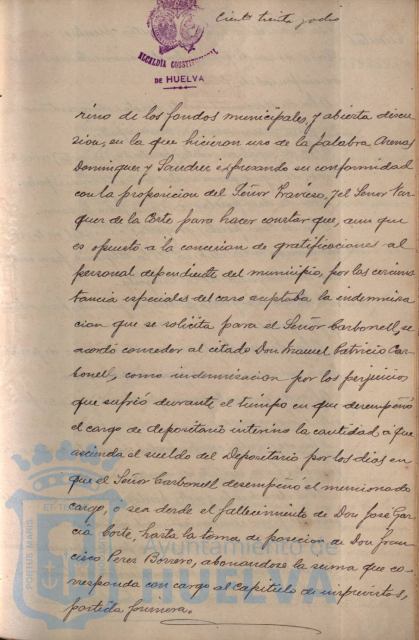 Ciento treinta y ocho
ALCALDÍA CONSTITUCIONAL
DE HUELVA
rino de los fondos municipales, y abierta discu-
sion, en la que hicieron uso de la palabra, Arenas
Dominguez y Saudréz expresando su conformidad
con la proposicion del Señor Travieso, y el Señor Vaz-
quez de la Corte para hacer constar que, aun que
es opuesto a la concesion de gratificaciones al
personal dependiente del municipio, por las circuns-
tancias especiales del caso aceptaba la indemniza-
cion que se solicita para el Señor Carbonell, se
acordó conceder al citado Don Manuel Patricio Car-
bonell, como indemnizacion por los perjuicios
que sufrió durante el tiempo en que desempeñó
el cargo de depositario interino la cantidad a que
ascienda el sueldo del Depositario por los dias en
que el Señor Carbonell desempeñó el mencionado
cargo, o sea desde el fallecimiento de Don José Gar-
cía Corte, hasta la toma de posesion de Don Fran-
cisco Perez Borrero, abonandose la suma que co-
rresponda con cargo al capitulo de imprevistos,
partida primera.
PORTUS MARIS
ET TERRÆ
Ayuntamiento de
HUELVA